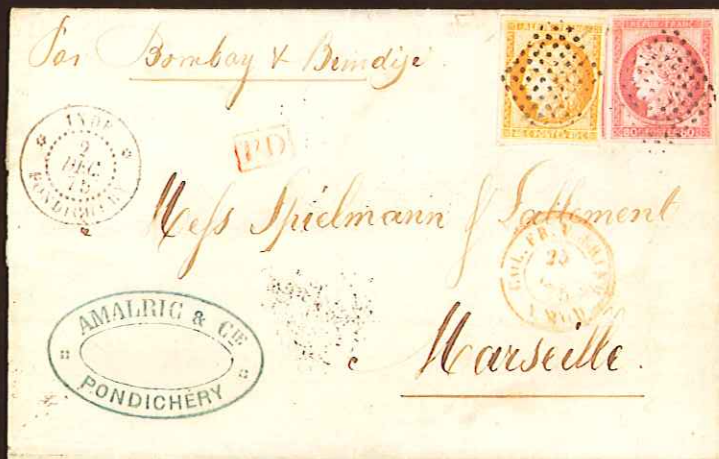 Per Bombay & Brindisi
REPUB. FRANC.
INDE
2
DEC.
75
PONDICHERY
PD
Mess Spielmann & Lallement
COL. FR.
25
AMALRIC & CIE
PONDICHÉRY
Marseille.